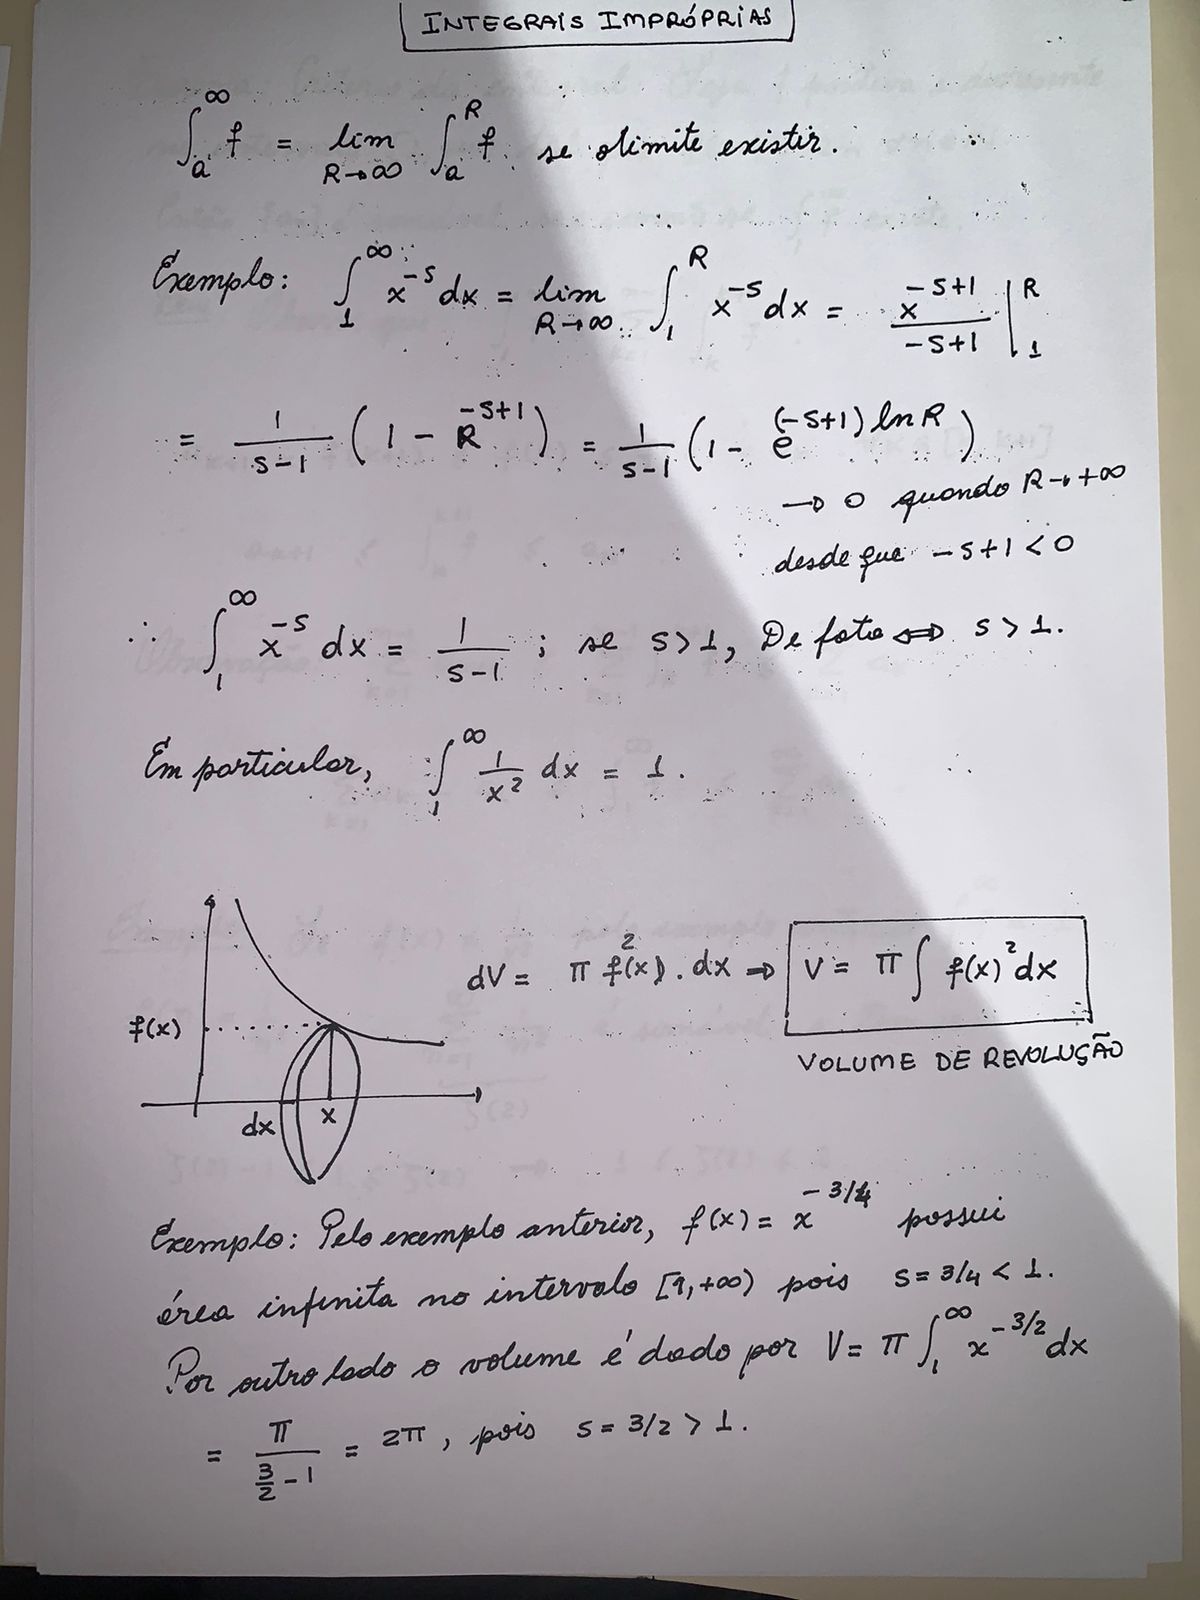 INTEGRAIS IMPRÓPRIAS
∫_a^∞ f = lim_{R→∞} ∫_a^R f se o limite existir.
Exemplo: ∫_1^∞ x^{-s} dx = lim_{R→∞} ∫_1^R x^{-s} dx = x^{-s+1}/(-s+1) |_1^R
= 1/(s-1) (1 - R^{-s+1}) = 1/(s-1) (1 - e^{(-s+1) ln R})
→ 0 quando R→+∞
desde que -s+1 < 0
∴ ∫_1^∞ x^{-s} dx = 1/(s-1) ; se s>1, De fato ⇔ s > 1.
Em particular, ∫_1^∞ 1/x^2 dx = 1.
f(x)
dx
x
dV = π f(x)^2 . dx ⇒ V = π ∫ f(x)^2 dx
VOLUME DE REVOLUÇÃO
Exemplo: Pelo exemplo anterior, f(x) = x^{-3/4} possui
área infinita no intervalo [1,+∞) pois s = 3/4 < 1.
Por outro lado o volume é dado por V = π ∫_1^∞ x^{-3/2} dx
= π/(3/2 - 1) = 2π, pois s = 3/2 > 1.